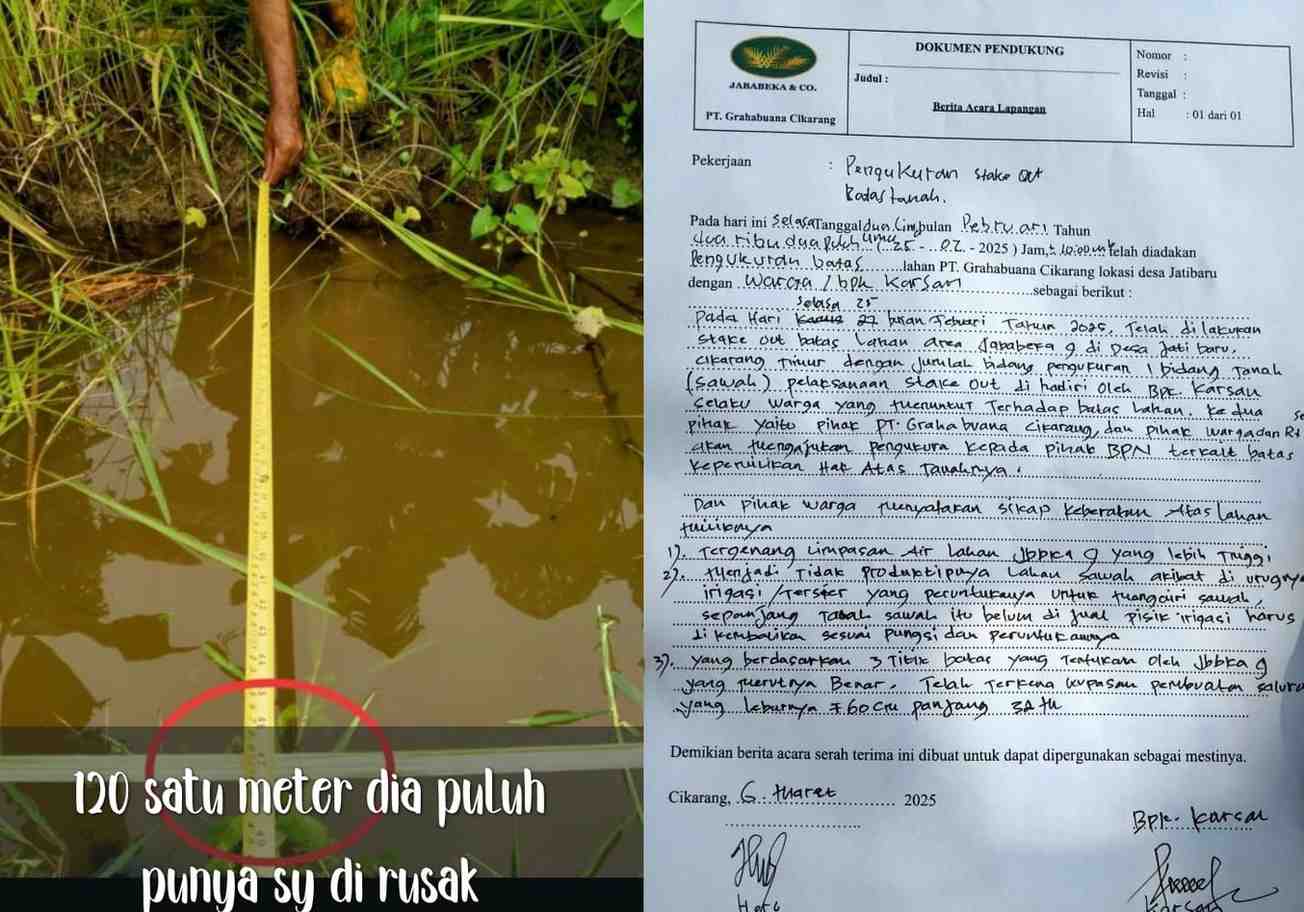 120 satu meter dia puluh
punya sy di rusak
JABABEKA & CO.
PT. Grahabuana Cikarang
DOKUMEN PENDUKUNG
Judul :
Berita Acara Lapangan
Nomor :
Revisi :
Tanggal :
Hal : 01 dari 01
Pekerjaan : Pengukuran stake out
Batas tanah.
Pada hari ini Selasa Tanggal dua lim bulan Februari Tahun
dua ribu dua puluh lima (25 - 02 - 2025 ) Jam, ± 10:00 telah diadakan
Pengukuran batas lahan PT. Grahabuana Cikarang lokasi desa Jatibaru
dengan Warga / bpk Karsan sebagai berikut :
selasa 25
Pada Hari Kamis 27 bulan Februari Tahun 2025. Telah di lakukan
stake out batas Lahan area Jababeka 9 di Desa Jati baru.
Cikarang Timur dengan Jumlah bidang pengukuran 1 bidang Tanah
(sawah) pelaksanaan stake out di hadiri oleh Bpk. Karsan
Selaku Warga yang menuntut Terhadap batas Lahan. Ke dua
pihak yaitu pihak PT. Graha buana Cikarang, dan pihak warga dan Rt
akan mengajukan pengukura kepada pihak BPN terkait batas
kepemilikan Hak Atas Tanahnya.
Dan pihak warga menyatakan sikap keberatan Atas lahan
miliknya
1). Tergenang Limpasan Air Lahan Jbbka 9 yang lebih Tinggi
2). Menjadi Tidak produktipnya Lahan sawah akibat di urugnya
irigasi / Terster yang peruntukanya untuk mengairi sawah,
sepanjang Tanah sawah itu belum di jual pisik irigasi harus
di kembalikan sesuai pungsi dan peruntukannya
3). yang berdasarkan 3 Titik batas yang Tentukan oleh Jbbka 9
yang menurutnya Benar. Telah Terkena kupasan pembuatan salura
yang lebarnya ± 60 cm panjang 32 m
Demikian berita acara serah terima ini dibuat untuk dapat dipergunakan sebagai mestinya.
Cikarang, 6 Maret 2025
Bpk. Karsan
Karsan